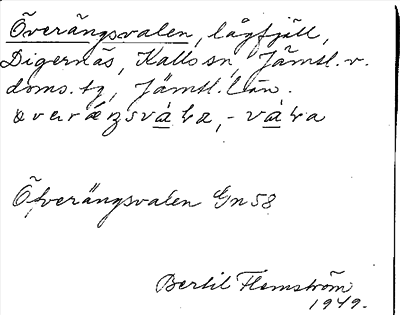 Överängsvalen, lågfjäll,
Digernäs, Kalls sn, Jämtl. v.
doms. tg, Jämtl. Län.
Öfverängsvalen Gn 58
Bertil Flemström
1949.